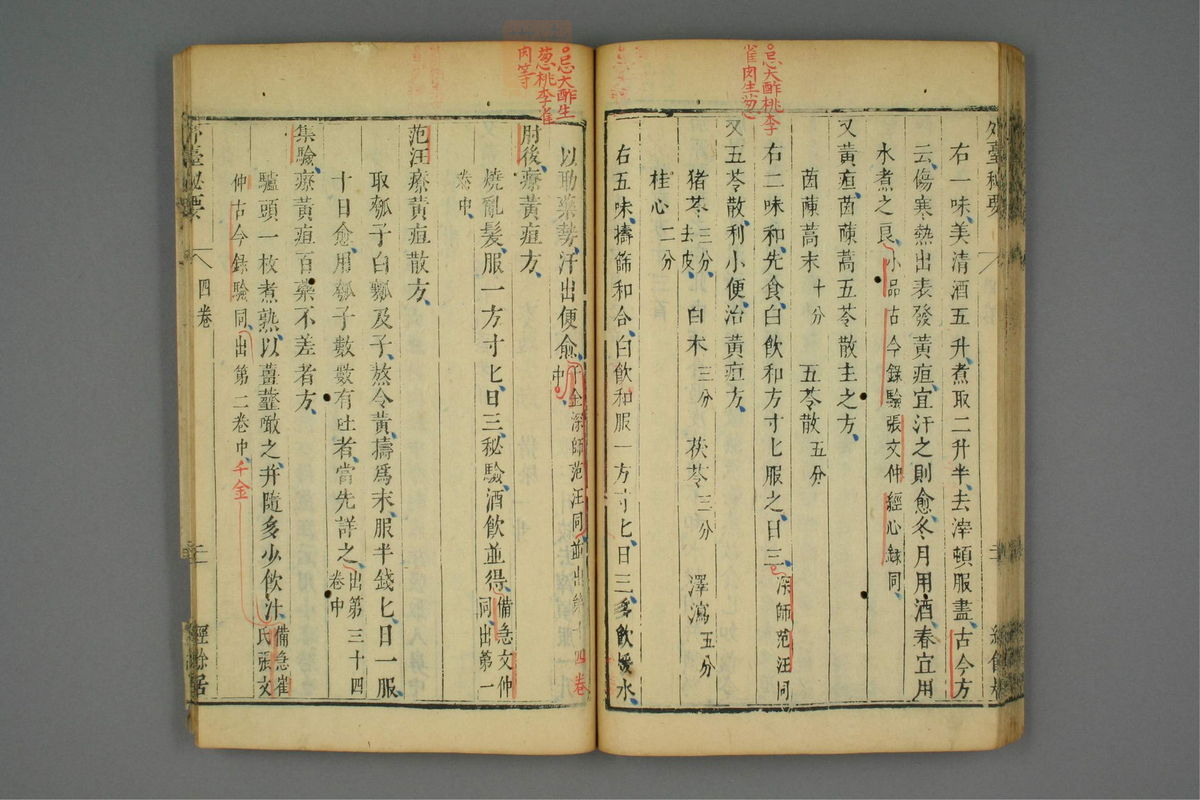 外臺秘要
右一味美清酒五升煮取二升半去滓頓服盡古今方
云傷寒熱出表發黃疸宜汗之則愈冬月用酒春宜用
水煮之良小品古今錄驗張文仲經心錄同
又黃疸茵蔯蒿五苓散主之方
茵蔯蒿末十分 五苓散五分
忌大酢桃李
雀肉生葱
右二味和先食白飲和方寸匕服之日三深師范汪同
又五苓散利小便治黃疸方
猪苓三分去皮 白朮三分 茯苓三分 澤瀉五分
桂心二分
右五味擣篩和合白飲和服一方寸匕日三多飲煖水
忌大酢生
葱桃李雀
肉等
以助藥勢汗出便愈千金深師范汪同並出第十四卷
中
肘後療黃疸方
燒亂髮服一方寸匕日三秘驗酒飲並得備急文仲
同出第一
卷中
范汪療黃疸散方
取瓠子白瓤及子熬令黃擣為末服半錢匕日一服
十日愈用瓠子數數有吐者當先詳之出第三十四
卷中
集驗療黃疸百藥不差者方
驢頭一枚煮熟以薑虀噉之并隨多少飲汁備急崔
氏張文
仲古今錄驗同出第二卷中千金
外臺秘要
四卷
經餘居